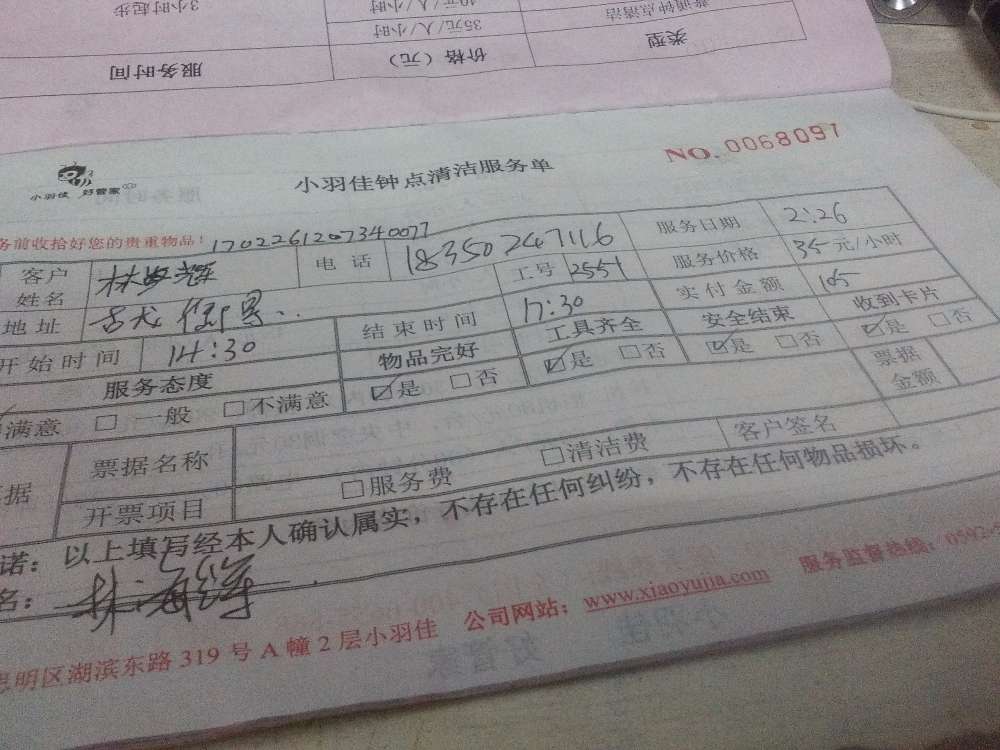 3小时起步
40元/人/小时
普通钟点清洁
35元/人/小时
服务时间
价格（元）
类型
小羽佳 好管家
小羽佳钟点清洁服务单
NO.0068091
务前收拾好您的贵重物品！170226120734007
客户姓名 电话 18350247116 服务日期 2:26
地址 工号 2551 服务价格 35元/小时
开始时间 14:30 结束时间 17:30 实付金额 105
服务态度 物品完好 工具齐全 安全结束 收到卡片
满意 □ 一般 □不满意 ☑是 □否 ☑是 □否 ☑是 □否 ☑是 □否
据 票据名称 票据金额
开票项目 □服务费 □清洁费 客户签名
诺：以上填写经本人确认属实，不存在任何纠纷，不存在任何物品损坏。
名：
思明区湖滨东路319号A幢2层小羽佳 公司网站：www.xiaoyujia.com 服务监督热线：0592-